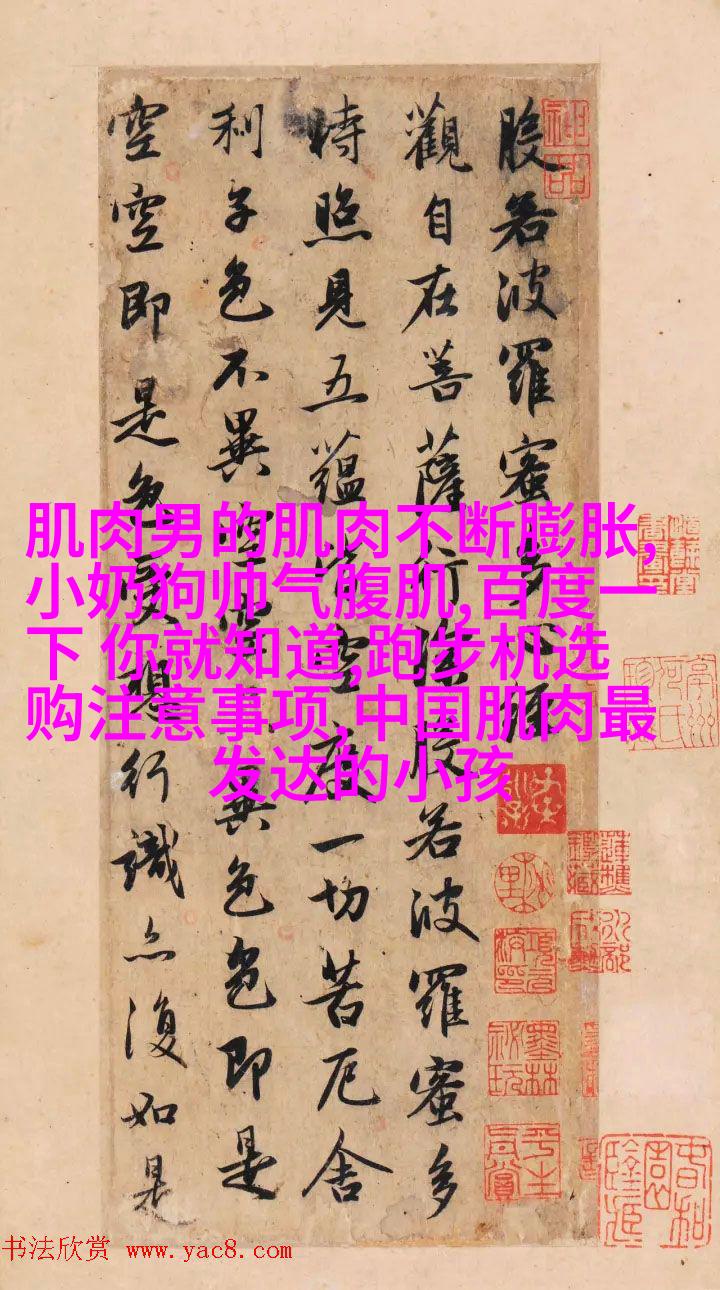 肌肉男的肌肉不断膨胀,
小奶狗帅气腹肌,百度一
下 你就知道,跑步机选
购注意事项,中国肌肉最
发达的小孩
般若波羅蜜多心經
觀自在菩薩行深般若波羅蜜多
時照見五蘊皆空度一切苦厄舍
利子色不異空空不異色色即是
空空即是色受想行識亦復如是
神品
墨林
秘玩
书法欣赏 www.yac8.com